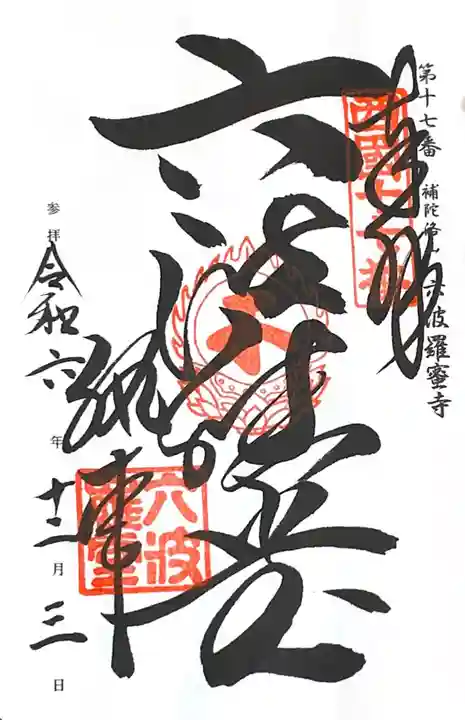 第十七番 補陀洛山 六波羅蜜寺
奉拝
西国十七番
六波羅堂
六
執事
六波羅堂
参拝 令和六年十二月三日